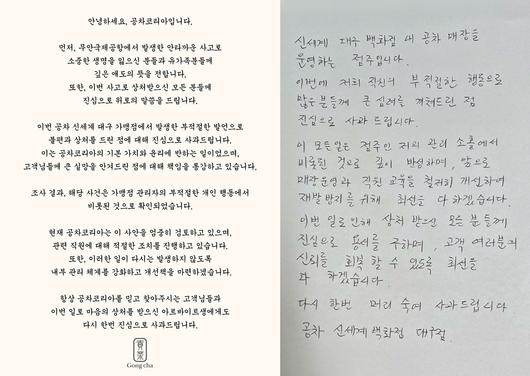 안녕하세요, 공차코리아입니다.
먼저, 무안국제공항에서 발생한 안타까운 사고로
소중한 생명을 잃으신 분들과 유가족분들께
깊은 애도의 뜻을 전합니다.
또한, 이번 사고로 상처받으신 모든 분들께
진심으로 위로의 말씀을 드립니다.
이번 공차 신세계 대구 가맹점에서 발생한 부적절한 발언으로
불편과 상처를 드린 점에 대해 진심으로 사과드립니다.
이는 공차코리아의 기본 가치와 윤리에 반하는 일이었으며,
고객님들께 큰 실망을 안겨드린 점에 대해 책임을 통감하고 있습니다.
조사 결과, 해당 사건은 가맹점 관리자의 부적절한 개인 행동에서
비롯된 것으로 확인되었습니다.
현재 공차코리아는 이 사안을 엄중히 검토하고 있으며,
관련 직원에 대해 적절한 조치를 진행하고 있습니다.
또한, 이러한 일이 다시는 발생하지 않도록
내부 관리 체계를 강화하고 개선책을 마련하겠습니다.
항상 공차코리아를 믿고 찾아주시는 고객님들과
이번 일로 마음의 상처를 받으신 아르바이트생에게도
다시 한번 진심으로 사과드립니다.
Gong cha
신세계 대구 백화점 내 공차 매장을
운영하는 점주입니다.
이번에 저희 직원의 부적절한 행동으로
많은 분들께 큰 심려를 끼쳐드린 점
진심으로 사과 드립니다.
이 모든일은 점주인 저의 관리 소홀에서
비롯된 것으로 깊이 반성하며, 앞으로
매장운영과 직원 교육을 철저히 개선하여
재발방지를 위해 최선을 다 하겠습니다.
이번 일로 인해 상처 받으신 모든 분들께
진심으로 용서를 구하며, 고객 여러분께
신뢰를 회복 할 수 있도록 최선을
다 하겠습니다.
다시 한번 머리 숙여 사과드립니다
공차 신세계 백화점 대구점.